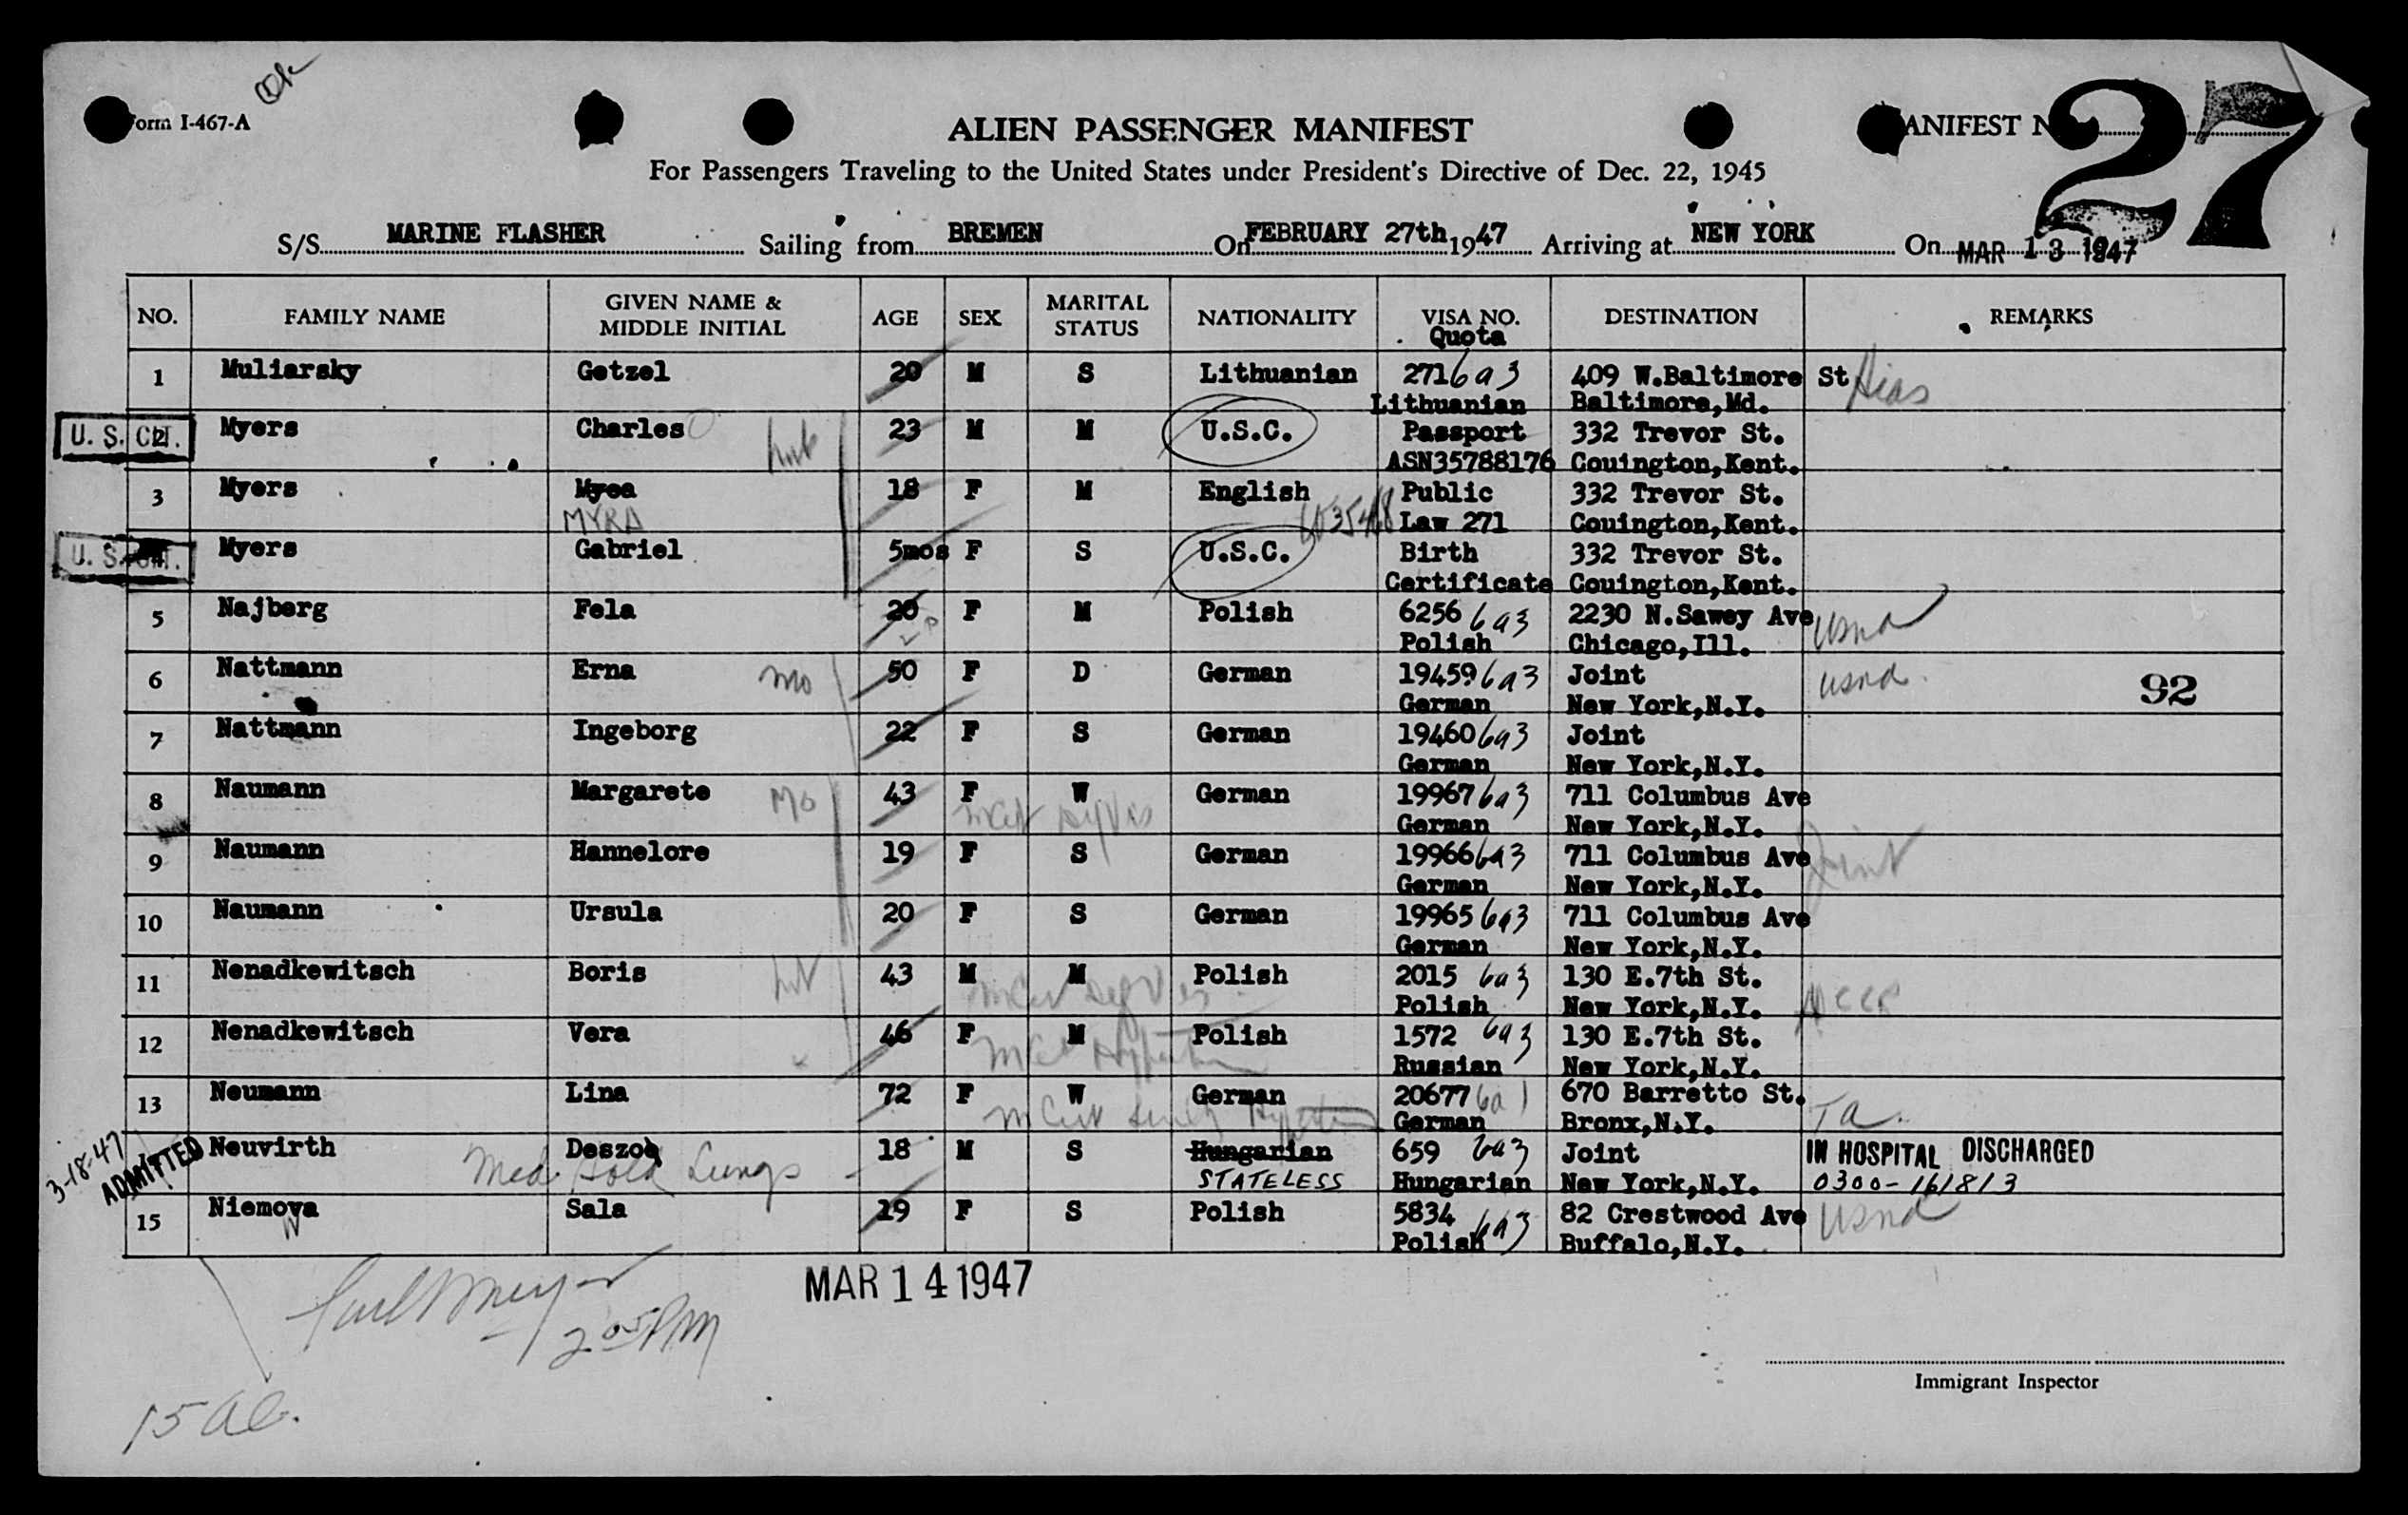 Ok
Form I-467-A
ALIEN PASSENGER MANIFEST
MANIFEST N
27
For Passengers Traveling to the United States under President's Directive of Dec. 22, 1945
S/S MARINE FLASHER Sailing from BREMEN On FEBRUARY 27th 1947 Arriving at NEW YORK On MAR 13 1947
NO. FAMILY NAME GIVEN NAME & MIDDLE INITIAL AGE SEX MARITAL STATUS NATIONALITY VISA NO. Quota DESTINATION REMARKS
1 Muliarsky Getzel 20 M S Lithuanian 271 6a3 409 W.Baltimore St Hias
Lithuanian Baltimore,Md.
U. S. CIT. 2 Myers Charles husb 23 M M U.S.C. Passport 332 Trevor St.
ASN35788176 Couington,Kent.
3 Myers Myea 18 F M English Public 332 Trevor St.
MYRA Law 271 Couington,Kent.
U. S. CIT. Myers Gabriel 5mos F S U.S.C. Birth 332 Trevor St.
Certificate Couington,Kent.
5 Najberg Fela 20 F M Polish 6256 6a3 2230 N.Sawey Ave usna
Polish Chicago,Ill.
6 Nattmann Erna mo 50 F D German 19459 6a3 Joint usna
German New York,N.Y.
92
7 Nattmann Ingeborg 22 F S German 19460 6a3 Joint
German New York,N.Y.
8 Naumann Margarete Mo 43 F W German 19967 6a3 711 Columbus Ave
German New York,N.Y.
9 Naumann Hannelore 19 F S German 19966 6a3 711 Columbus Ave Joint
German New York,N.Y.
10 Naumann Ursula 20 F S German 19965 6a3 711 Columbus Ave
German New York,N.Y.
11 Nenadkewitsch Boris 43 M M Polish 2015 6a3 130 E.7th St.
Polish New York,N.Y.
12 Nenadkewitsch Vera 46 F M Polish 1572 6a3 130 E.7th St.
Russian New York,N.Y.
13 Neumann Lina 72 F W German 20677 6a1 670 Barretto St.
German Bronx,N.Y.
3-18-47 ADMITTED Neuvirth Deszoe 18 M S Hungarian 659 6a3 Joint IN HOSPITAL DISCHARGED
Med. Hold Lungs STATELESS Hungarian New York,N.Y. 0300-161813
15 Niemova Sala 19 F S Polish 5834 6a3 82 Crestwood Ave usna
W Polish Buffalo,N.Y.
MAR 14 1947
2 05 PM
15 al.
Immigrant Inspector